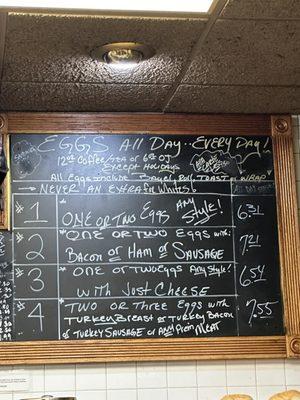 EGGS All DAY.. EVERY DAY!
12oz COFFEE/TEA OR 6oz OJ
EXCEPT HOLIDAYS
ALL EGGS INCLUDE BAGEL, ROLL, TOAST OR WRAP
NEVER AN EXTRA FOR WHITES! ALL DAY
#1 * ONE OR TWO EGGS ANY STYLE! 6.31
#2 * ONE OR TWO EGGS WITH: 7.21
BACON OR HAM OR SAUSAGE
#3 * ONE OR TWO EGGS ANY STYLE! 6.54
WITH JUST CHEESE
#4 * TWO OR THREE EGGS WITH 7.55
TURKEY BREAST OR TURKEY BACON
OR TURKEY SAUSAGE OR ANY MEAT